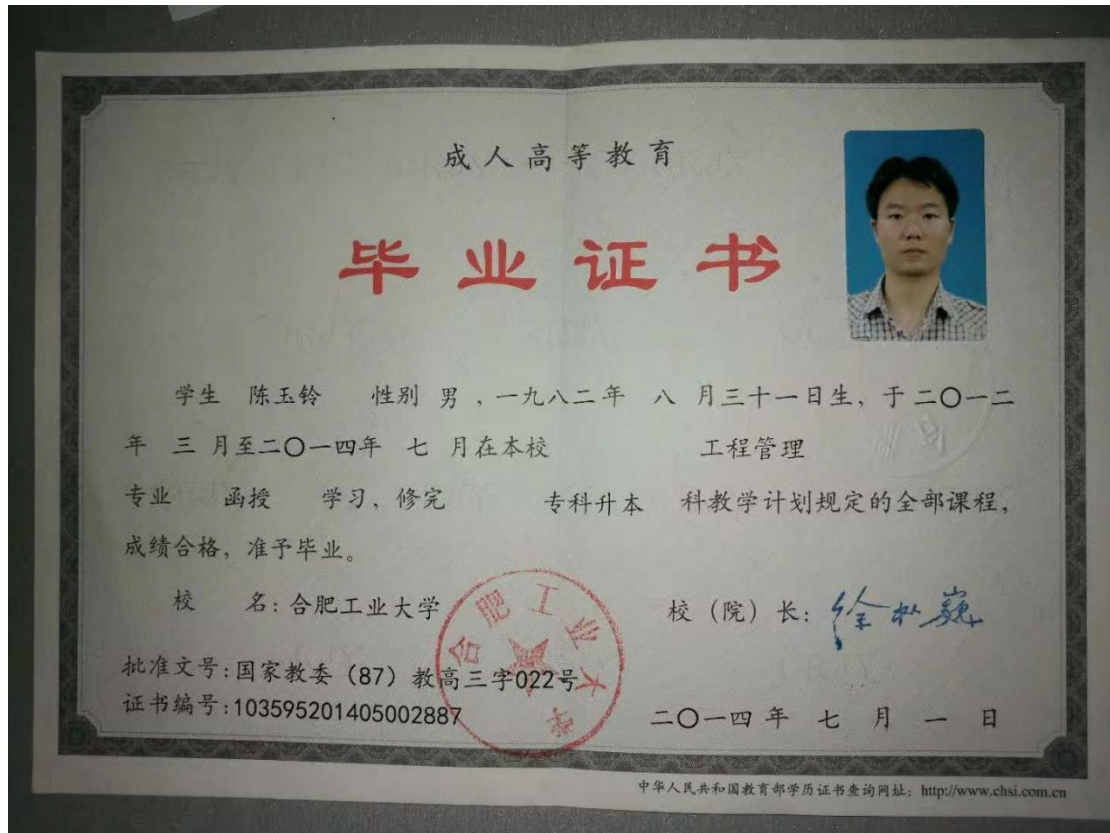 成人高等教育
毕业证书
学生 陈玉铃 性别 男，一九八二年 八 月三十一日生，于二〇一二
年 三 月至二〇一四年 七 月在本校 工程管理
专业 函授 学习，修完 专科升本 科教学计划规定的全部课程，
成绩合格，准予毕业。
校 名：合肥工业大学 校（院）长：徐枞巍
合肥工业大学
批准文号：国家教委（87）教高三字022号
证书编号：103595201405002887 二〇一四年 七 月 一 日
中华人民共和国教育部学历证书查询网址：http://www.chsi.com.cn